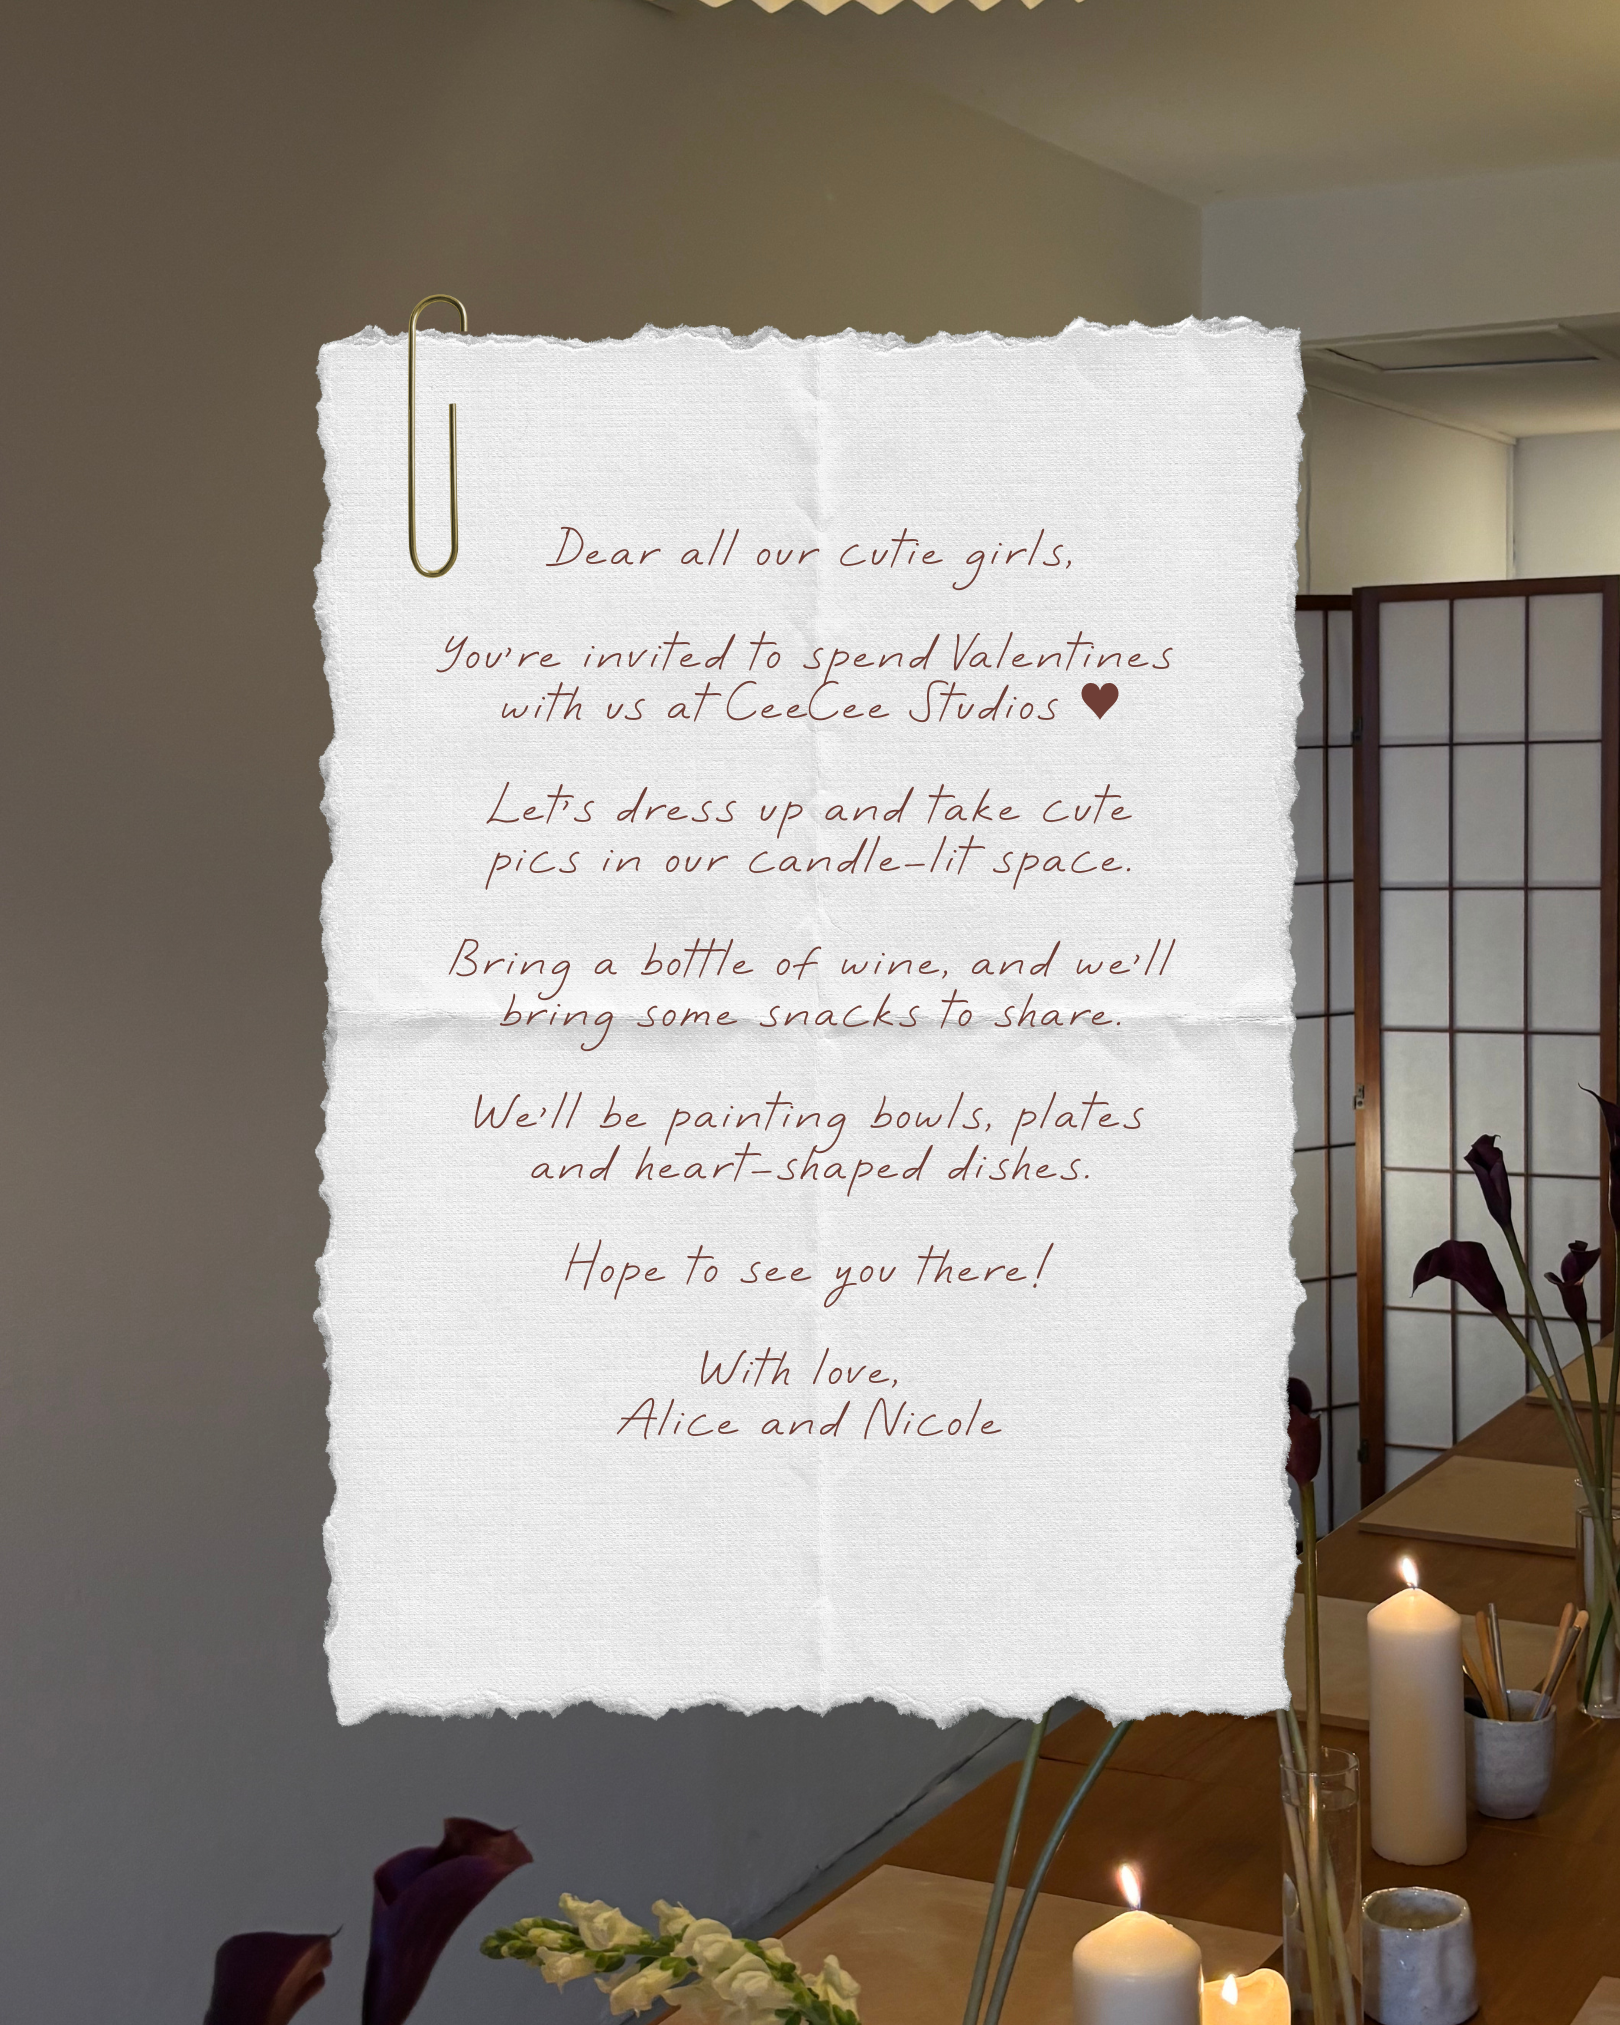 Dear all our cutie girls,
You're invited to spend Valentines
with us at CeeCee Studios ♥
Let's dress up and take cute
pics in our candle-lit space.
Bring a bottle of wine, and we'll
bring some snacks to share.
We'll be painting bowls, plates
and heart-shaped dishes.
Hope to see you there!
With love,
Alice and Nicole